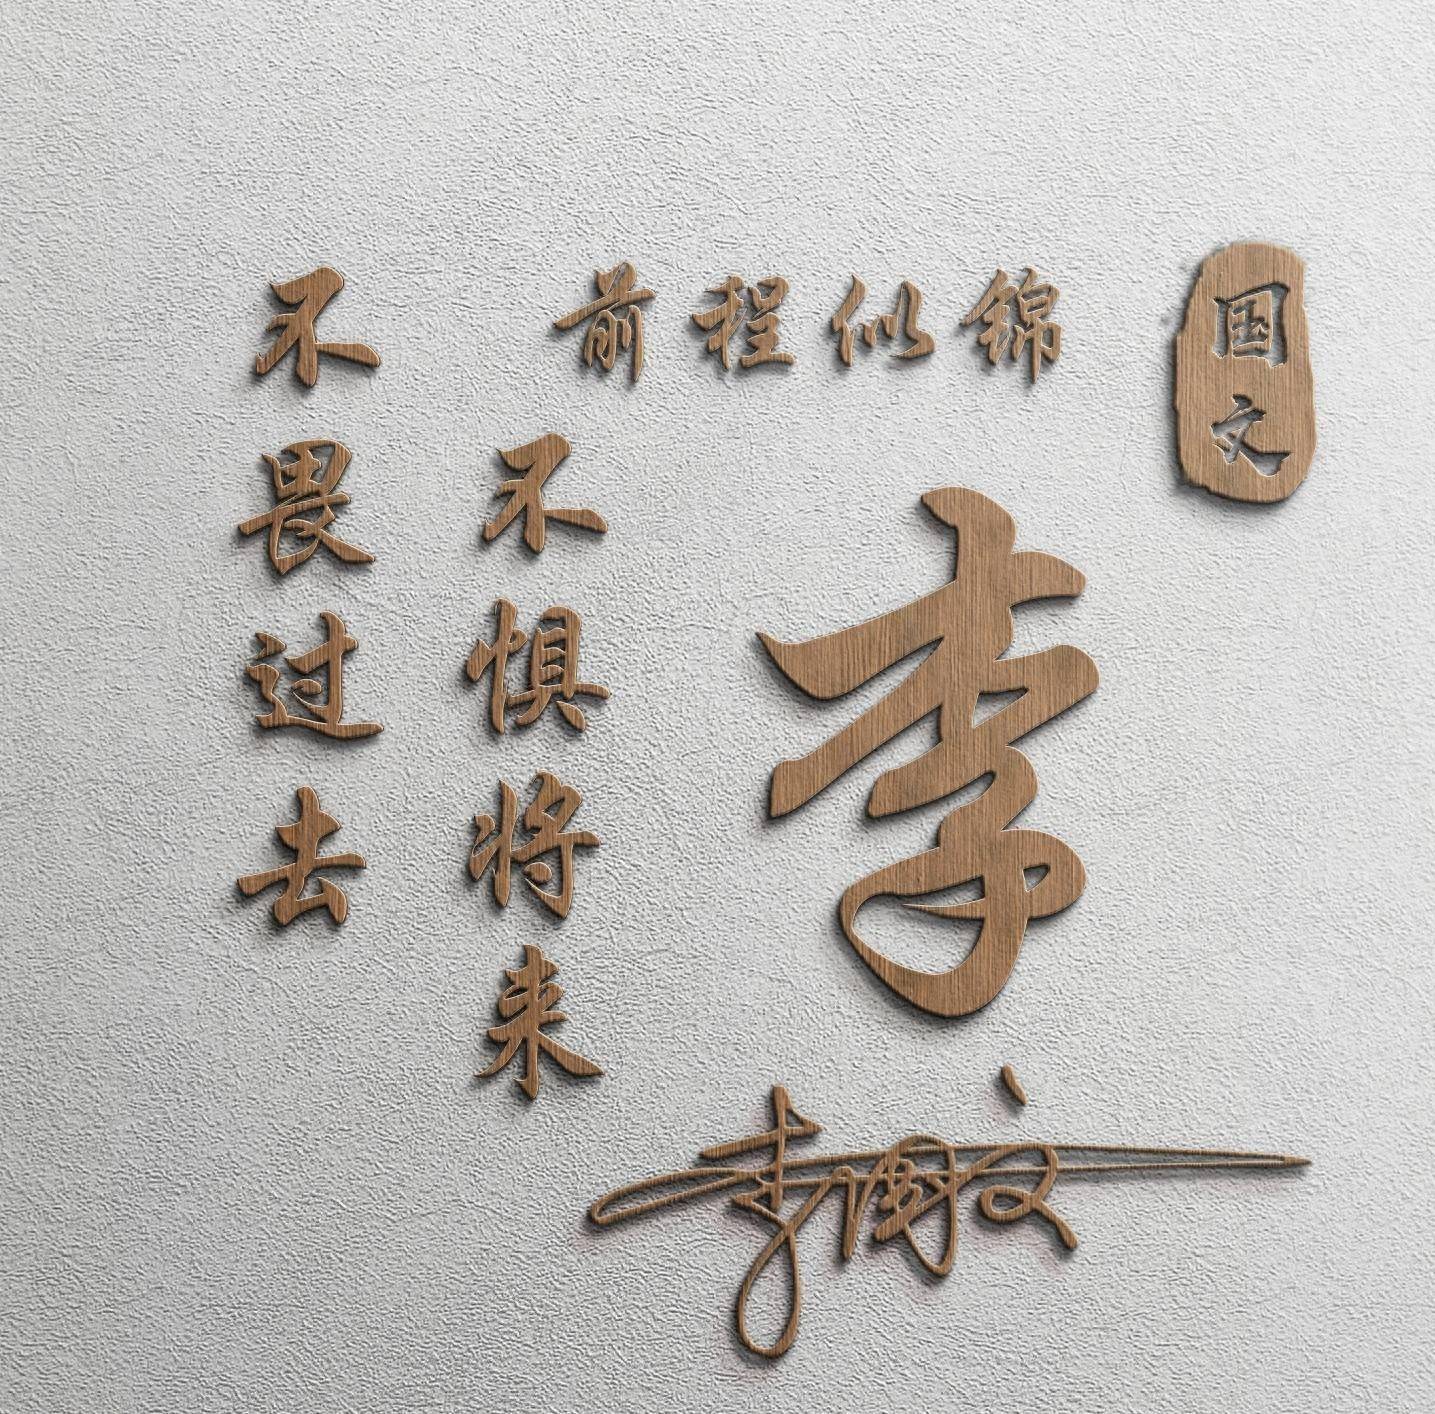 国文
前程似锦
李
不惧将来
不畏过去
李国文